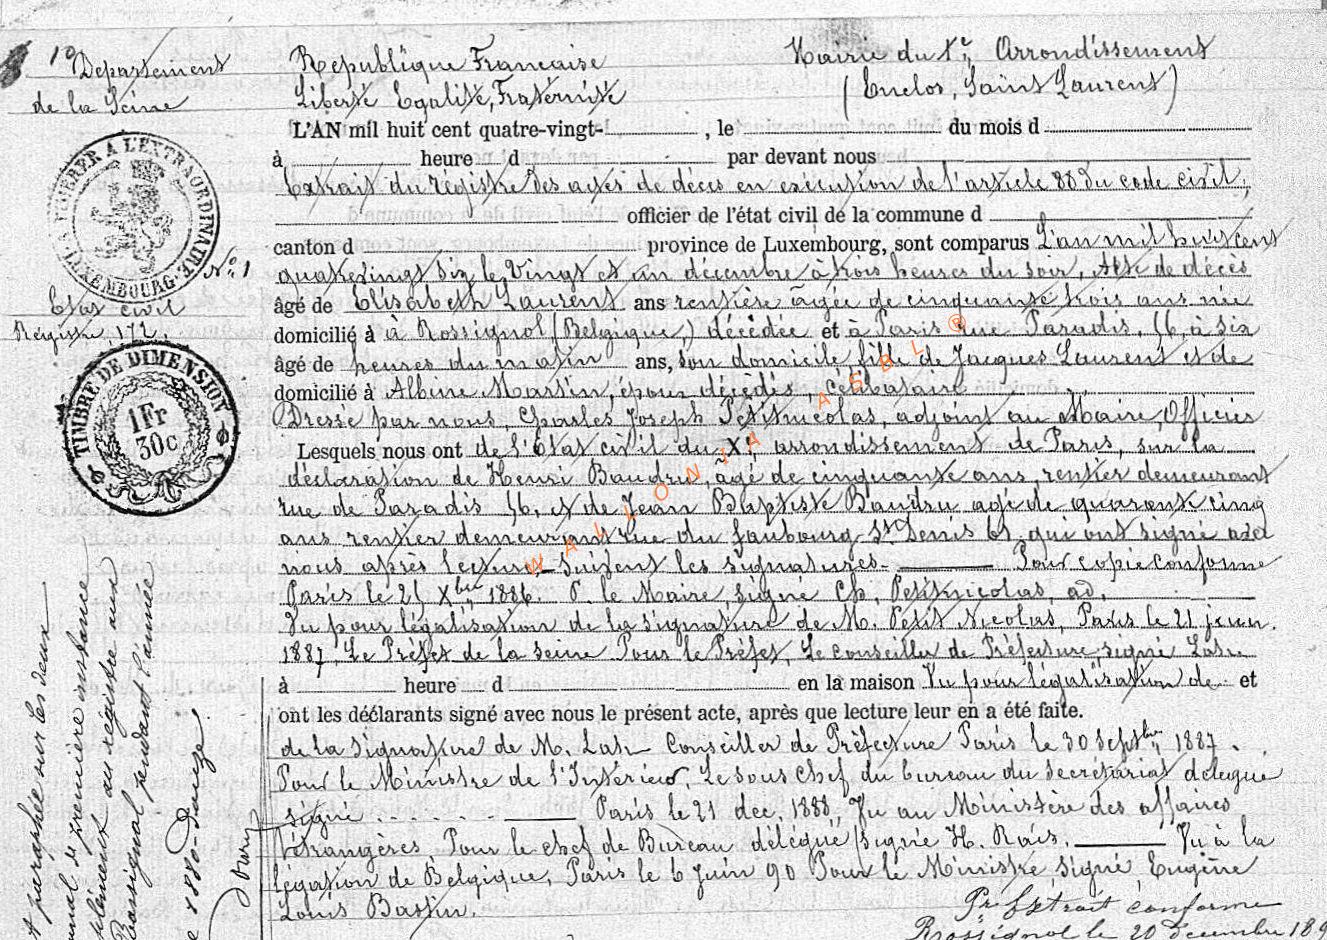 1º Departement
de la Seine
République Francaise
Liberté Egalité, Fraternité
Mairie du X.e Arrondissement
(Enclos, Saint Laurent)
L'AN mil huit cent quatre-vingt- , le du mois d
à heure d par devant nous
Extrait du régistre des actes de décès en exécution de l'article 80 du code civil,
officier de l'état civil de la commune d
canton d province de Luxembourg, sont comparus L'an mil huit cent
quatrevingt six le vingt et un décembre à trois heures du soir, Acte de décès
âgé de Elisabeth Laurent ans rentière âgée de cinquante trois ans née
domicilié à à Rossignol (Belgique,) décédée et à Paris rue Paradis, 56, à six
âgé de heures du matin ans, son domicile fille de Jacques Laurent et de
domicilié à Albine Martin, époux décédés, célibataire
Dressé par nous, Charles Joseph Petitnicolas, adjoint au Maire, Officier
Lesquels nous ont de l'Etat civil du X.e arrondissement de Paris, sur la
déclaration de Henri Baudru, agé de cinquante ans, rentier demeurant
rue de Paradis 56, et de Jean Baptiste Baudru agé de quarante cinq
ans rentier demeurant rue du faubourg St Denis 65 qui ont signé avec
nous après lecture,- Suivent les signatures- Pour copie conforme
Paris le 25 Xbre 1886. P. le Maire signé Ch. Petitnicolas, ad.
Vu pour légalisation de la signature de M. Petit Nicolas, Paris le 21 janv.
1887. Le Préfet de la seine Pour le Préfet, Le conseiller de Préfecture signé
à heure d en la maison Vu pour légalisation de et
ont les déclarants signé avec nous le présent acte, après que lecture leur en a été faite.
de la Signature de M. Conseiller de Préfecture Paris le 30 Septbre 1887.
Pour le Ministre de l'Intérieur, Le sous chef du bureau du secrétariat délegué
signé . . . . . . . Paris le 21 dec. 1888, Vu au Ministère des affaires
étrangères Pour le chef de Bureau délégué signé H. Vu à la
légation de Belgique, Paris le 6 Juin 90 Pour le Ministre signé Eugène
Louis Bastin.
Pr Extrait conforme
Rossignol le 20 décembre 189
A TIMBRER A L'EXTRAORDINAIRE.
LUXEMBOURG.
Nº 1
Etat civil
Régistre, 172.
TIMBRE DE DIMENSION
1Fr
30c
WALLONIA ASBL ®
paraphé sur les deux
de première instance
au régistre aux
Rossignol pendant l'année